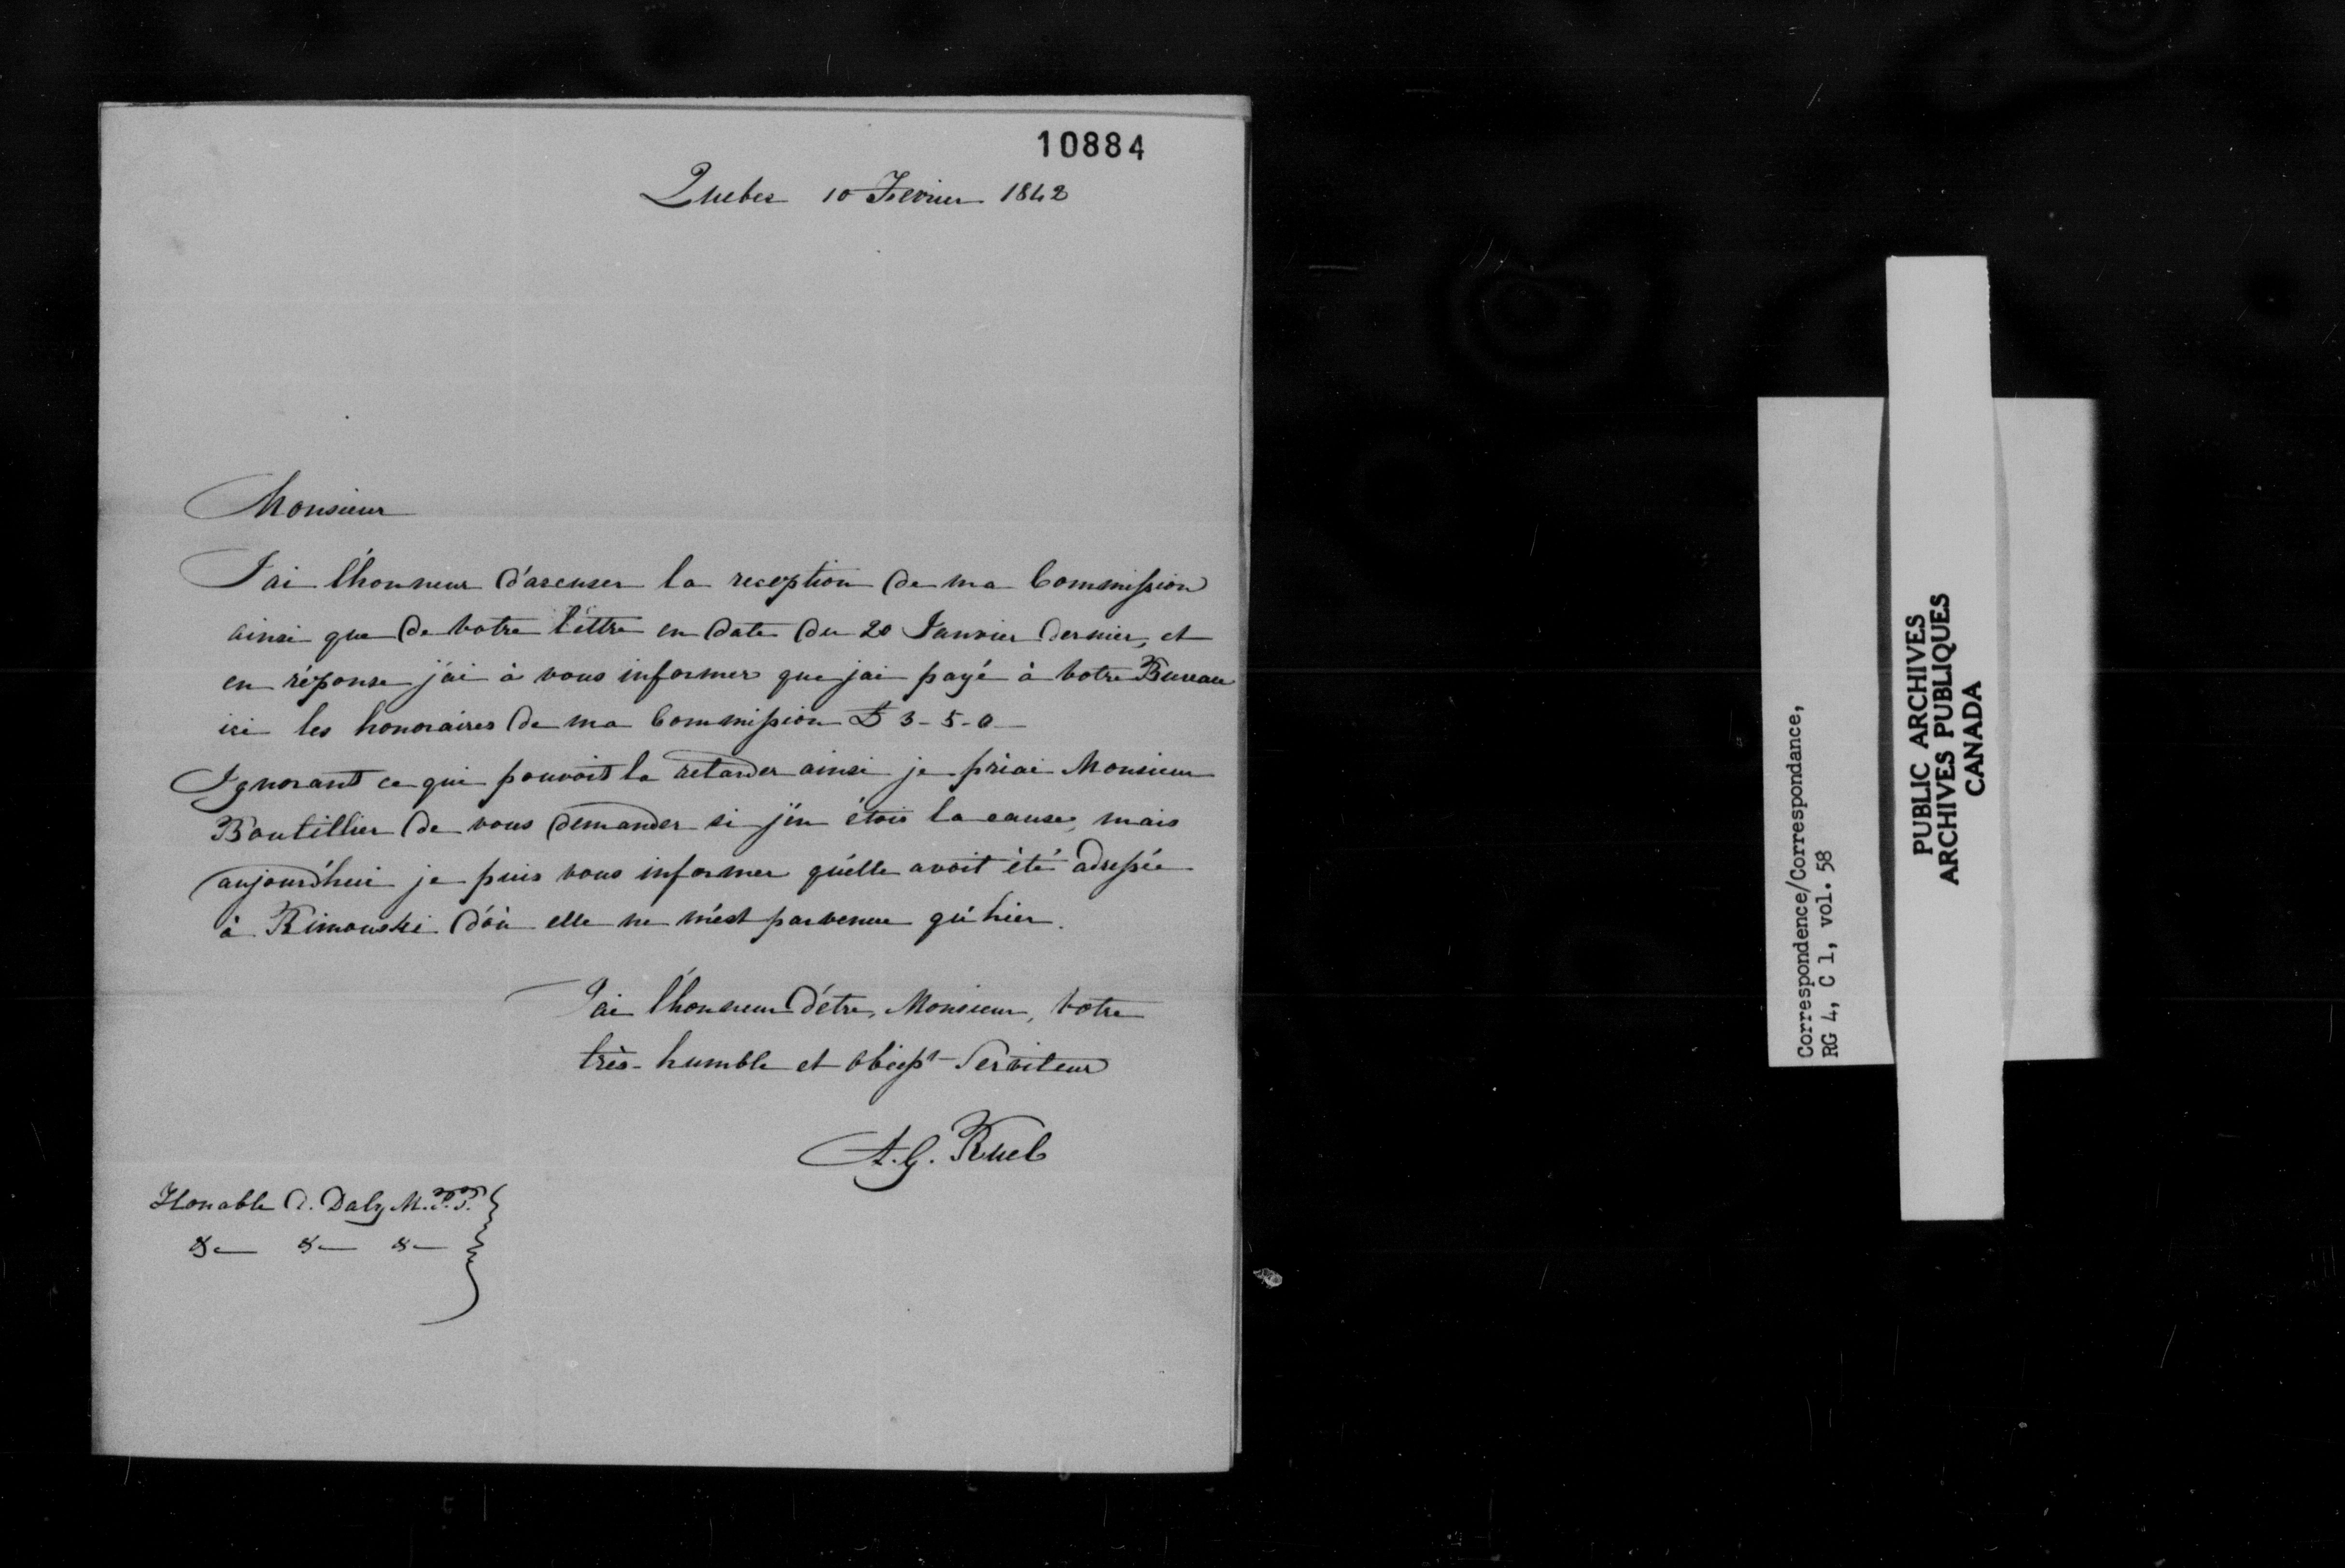 10884
Quebec 10 Fevrier 1842
Monsieur
J'ai l'honneur d'accuser la reception de ma Commission
ainsi que de votre lettre en date du 20 Janvier dernier, et
en réponse j'ai à vous informer que j'ai payé à votre Bureau
ici les honoraires de ma Commission £ 3-5-0
Ignorant ce qui pouvoit la retarder ainsi je priai Monsieur
Boutillier de vous demander si j'en étois la cause, mais
aujourd'hui je puis vous informer qu'elle avoit été adressée
à Rimouski d'où elle ne m'est parvenue qu'hier.
J'ai l'honneur d'être, Monsieur, votre
très-humble et obéisst Serviteur
A. G. Ruel
Honable D. Daly M.P.P.
&c &c &c
Correspondence/Correspondance,
RG 4, C 1, vol. 58
PUBLIC ARCHIVES
ARCHIVES PUBLIQUES
CANADA